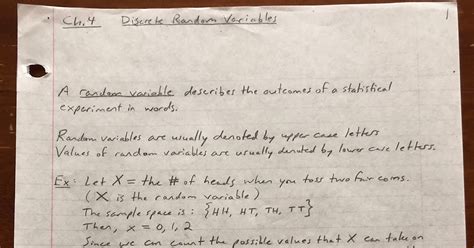 Ch. 4 Discrete Random Variables 1
A random variable describes the outcomes of a statistical
experiment in words.
Random variables are usually denoted by upper case letters
Values of random variables are usually denoted by lower case letters.
Ex: Let X = the # of heads when you toss two fair coins.
(X is the random variable)
The sample space is: {HH, HT, TH, TT}
Then, x = 0, 1, 2
Since we can count the possible values that X can take on